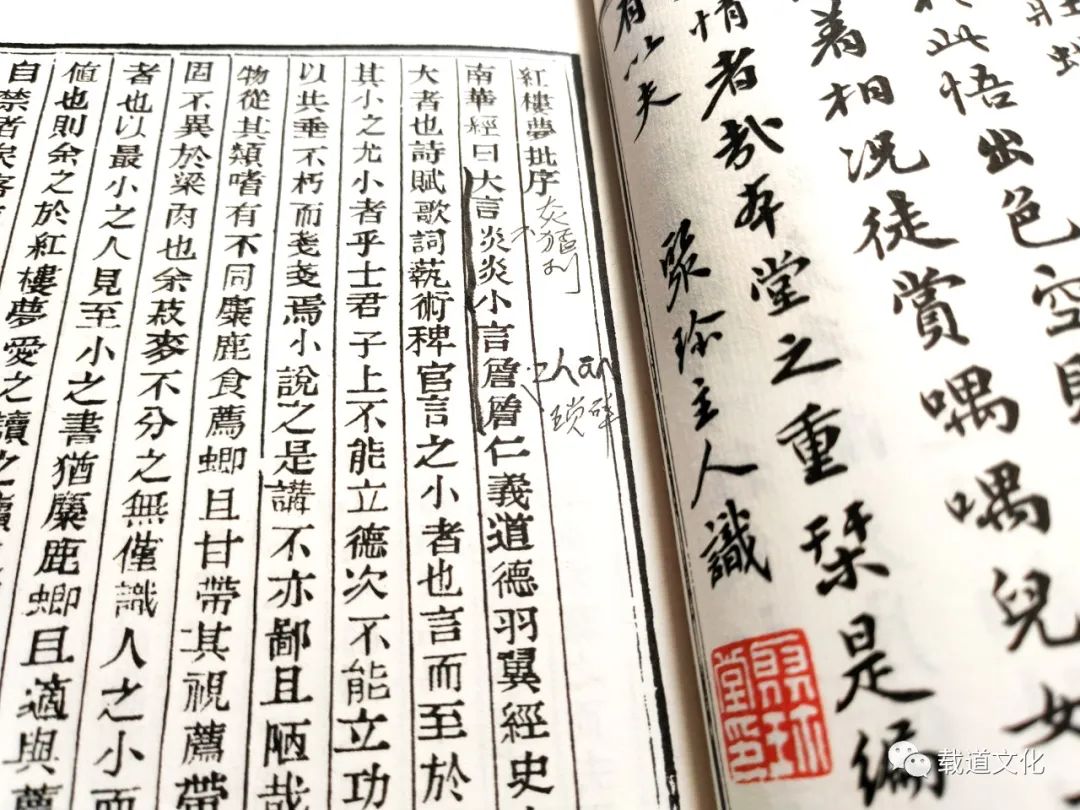 此悟出色空
着相況徒賞喁喁兒女
情者哉本堂之重栞是編
有以夫
聚珍主人識
聚珍堂印
紅樓夢批序
南華經曰大言炎炎小言詹詹仁義道德羽翼經史
大者也詩賦歌詞藝術稗官言之小者也言而至於
其小之尤小者乎士君子上不能立德次不能立功
以共垂不朽而戔戔焉小說之是講不亦鄙且陋哉
物從其類嗜有不同麋鹿食薦蝍且甘帶其視薦帶
固不異於梁肉也余菽麥不分之無僅識人之小而
者也以最小之人見至小之書猶麋鹿蝍且適與薦
值也則余之於紅樓夢愛之讀之讀
自禁者矣客
zhan
琐碎
载道文化